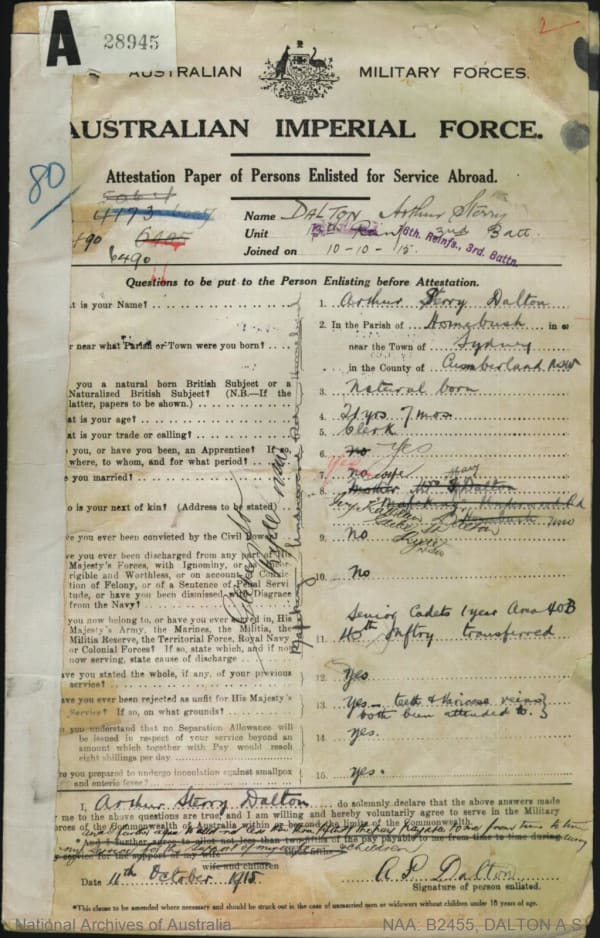 A 28945
2
AUSTRALIAN MILITARY FORCES.
AUSTRALIAN IMPERIAL FORCE.
Attestation Paper of Persons Enlisted for Service Abroad.
80
4193
490
6495
6490
Name DALTON Arthur Sterry
Unit 3rd Batt. 16th Reinfs., 3rd. Battn.
Joined on 10-10-15.
Questions to be put to the Person Enlisting before Attestation.
t is your Name?
1. Arthur Sterry Dalton
2. In the Parish of Homebush in or
r near what Parish or Town were you born?
near the Town of Sydney
in the County of Cumberland NSW
you a natural born British Subject or a
Naturalized British Subject? (N.B.—If the
latter, papers to be shown.)
3. Natural born
at is your age?
4. 21 yrs 7 mos
at is your trade or calling?
5. Clerk
you, or have you been, an Apprentice? If so
where, to whom, and for what period?
6. no Yes
e you married?
7. Yes no
o is your next of kin? (Address to be stated)
8. mother Mrs Mary Dalton
ve you ever been convicted by the Civil Power?
9. No
ve you ever been discharged from any part of His
Majesty's Forces, with Ignominy, or as Incor-
rigible and Worthless, or on account of Convic-
tion of Felony, or of a Sentence of Penal Servi-
tude, or have you been dismissed with Disgrace
from the Navy?
10. No
you now belong to, or have you ever served in, His
Majesty's Army, the Marines, the Militia, the
Militia Reserve, the Territorial Force, Royal Navy
or Colonial Forces? If so, state which, and if not
now serving, state cause of discharge
Senior Cadets 1 year Area 40B
11. 40th Inftry transferred
ave you stated the whole, if any, of your previous
service?
12. Yes
ave you ever been rejected as unfit for His Majesty's
Service? If so, on what grounds?
13. Yes — teeth & varicose veins
both been attended to.
you understand that no Separation Allowance will
be issued in respect of your service beyond an
amount which together with Pay would reach
eight shillings per day
14. yes.
re you prepared to undergo inoculation against smallpox
and enteric fever?
15. yes.
I, Arthur Sterry Dalton do solemnly declare that the above answers made
me to the above questions are true, and I am willing and hereby voluntarily agree to serve in the Military
rces of the Commonwealth of Australia within or beyond the limits of the Commonwealth.
*And I further agree to allot not less than two-fifths of the pay payable to me from time to time during
my service for the support of my wife
wife and children
Date 11th October 1915
A. S. Dalton
Signature of person enlisted.
*This clause to be amended where necessary and should be struck out in the case of unmarried men or widowers without children under 18 years of age.
National Archives of Australia
NAA: B2455, DALTON A S